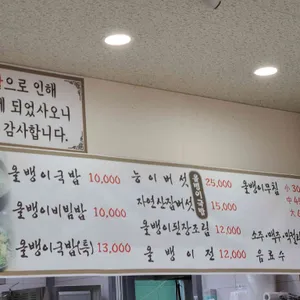 으로 인해
되었사오니
감사합니다.
올뱅이국밥 10,000
올뱅이비빔밥 10,000
올뱅이국밥(특) 13,000
능이버섯 25,000
자연산잡버섯 15,000
올뱅이국밥
올뱅이된장조림 12,000
올뱅이전 12,000
올뱅이무침 小 30
中 4
大
소주·맥주·막걸리
음료수